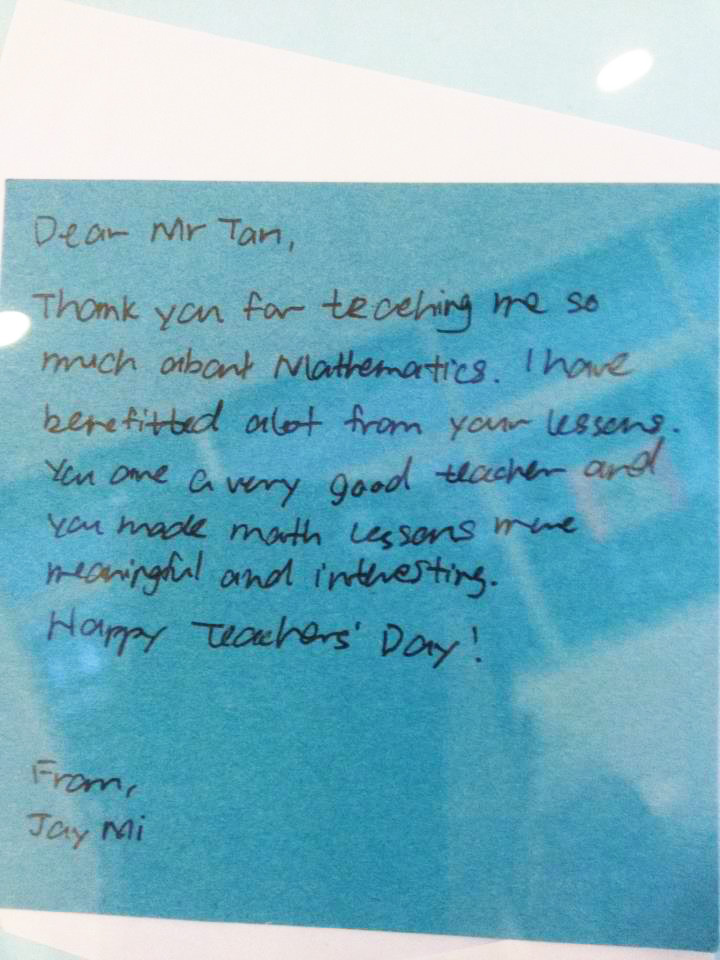 Dear Mr Tan,
Thank you for teaching me so
much about Mathematics. I have
benefitted alot from your lessons.
You are a very good teacher and
you made math lessons more
meaningful and interesting.
Happy Teachers' Day!
From,
Jay Mi